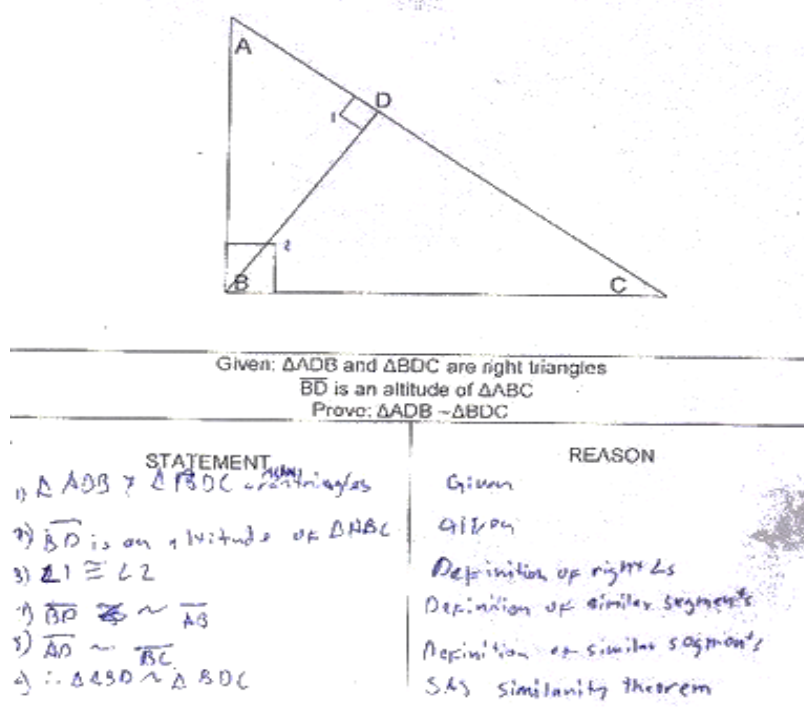 A
D
1
2
B
C
Given: ΔADB and ΔBDC are right triangles
BD is an altitude of ΔABC
Prove: ΔADB ~ΔBDC
STATEMENT
REASON
1) Δ ADB & Δ BDC are right triangles
Given
2) BD is an altitude of ΔABC
Given
3) ∠1 ≅ ∠2
Definition of right ∠s
4) BD ~ AB
Definition of similar segments
5) AD ~ BC
Definition of similar segments
∴ Δ ABD ~ Δ BDC
SAS similarity theorem